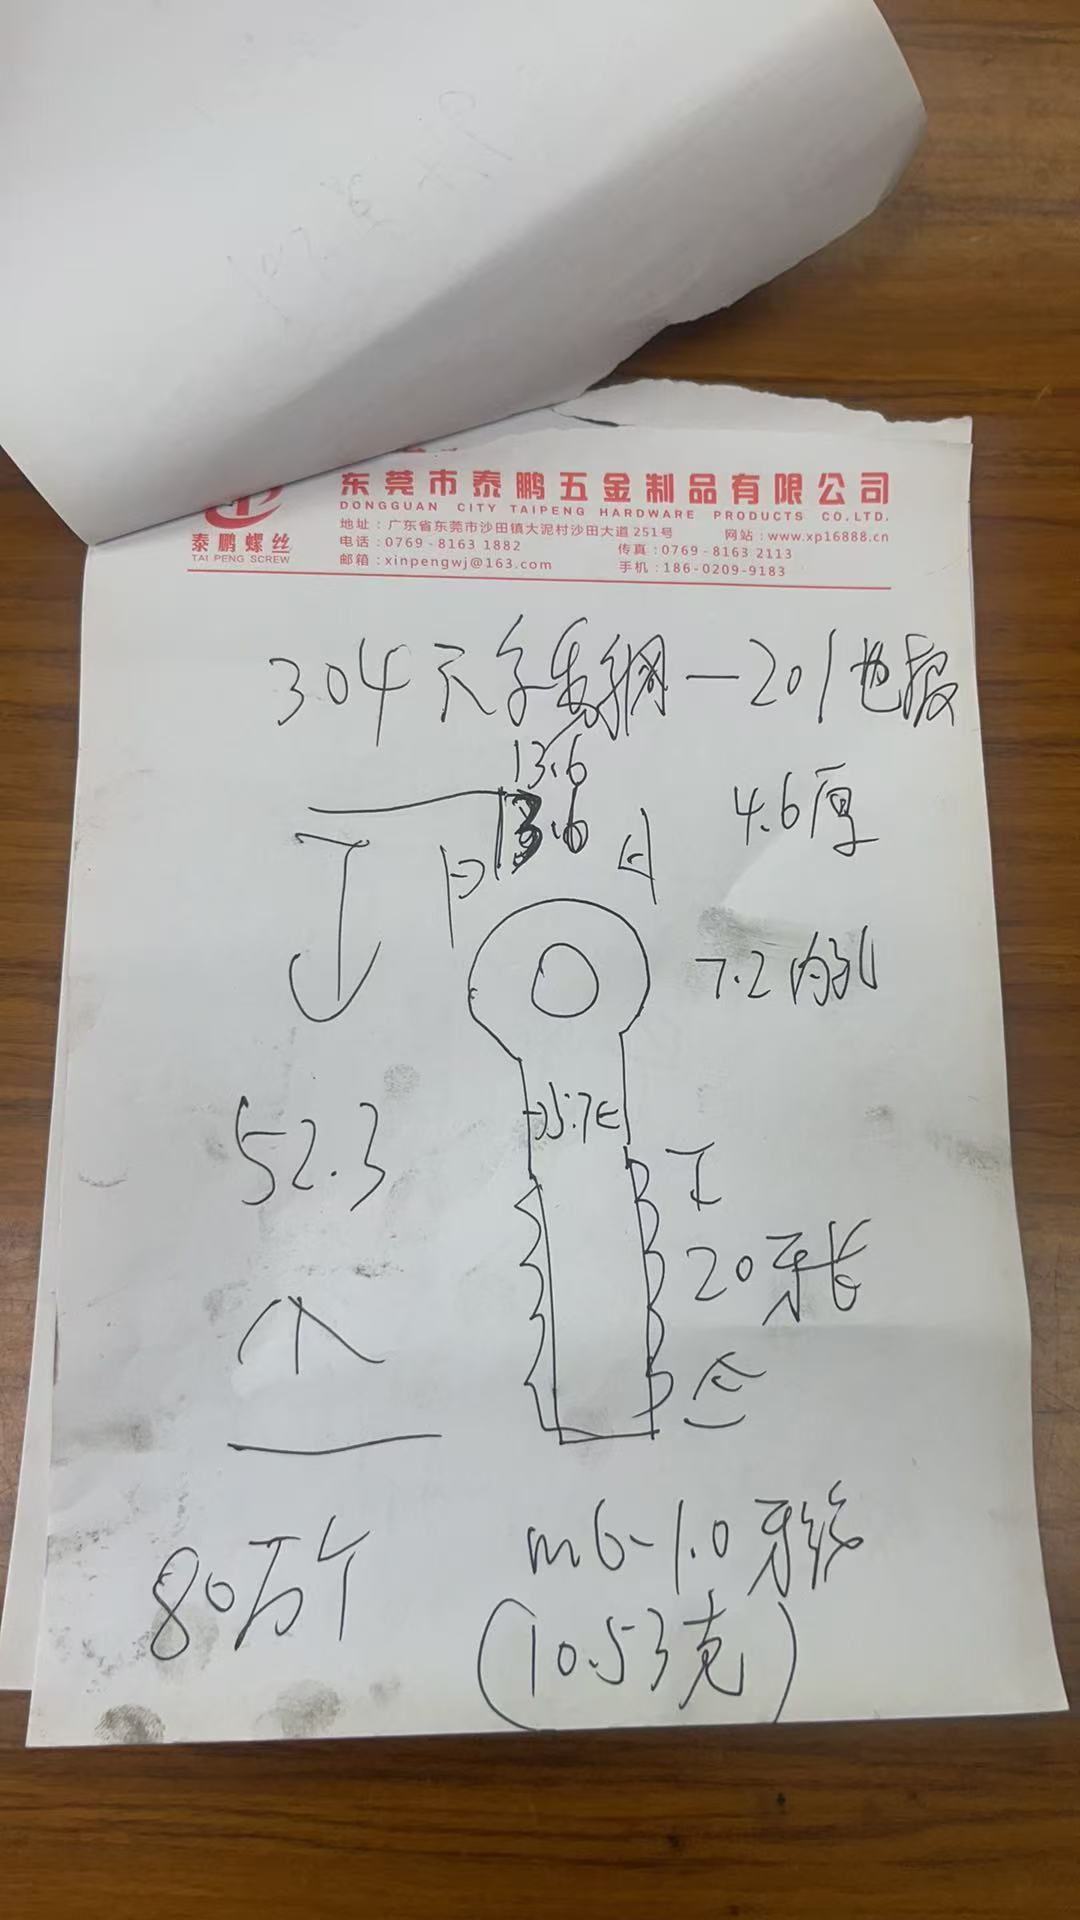 东莞市泰鹏五金制品有限公司
DONGGUAN CITY TAIPENG HARDWARE PRODUCTS CO.LTD.
泰鹏螺丝
TAI PENG SCREW
地址：广东省东莞市沙田镇大泥村沙田大道251号
网站：www.xp16888.cn
电话：0769-8163 1882
传真：0769-8163 2113
邮箱：xinpengwj@163.com
手机：186-0209-9183
304不锈钢—201也报
13.6
13.6
4.6厚
7.2内孔
5.7
52.3
20牙长
80万个
m6-1.0牙纹
(10.53克)